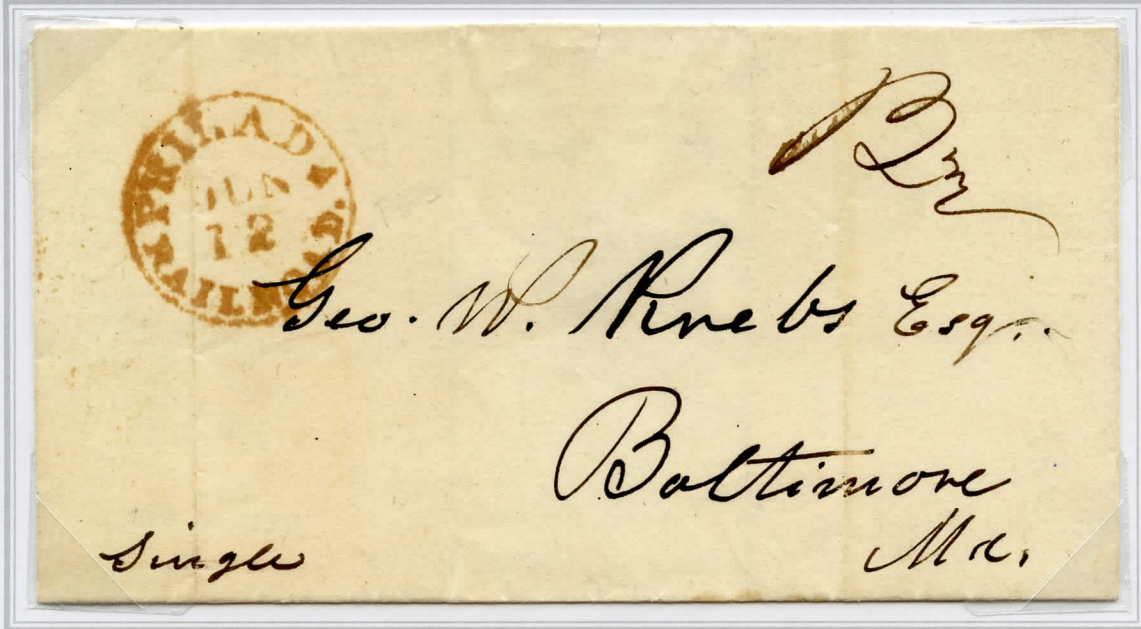 PHILADA. RAILROAD.
JUN
12
Geo. W. Krebs Esq.
Baltimore
Md.
Single